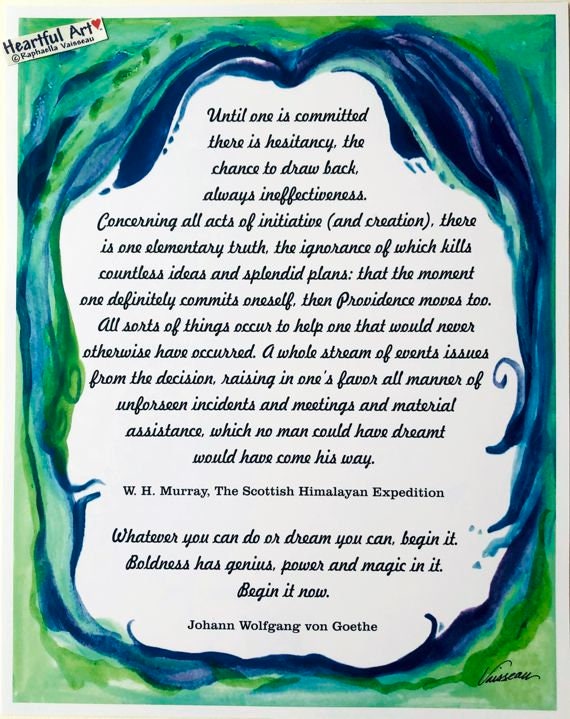 Heartful Art
© Raphaella Vaisseau
Until one is committed
there is hesitancy, the
chance to draw back,
always ineffectiveness.
Concerning all acts of initiative (and creation), there
is one elementary truth, the ignorance of which kills
countless ideas and splendid plans: that the moment
one definitely commits oneself, then Providence moves too.
All sorts of things occur to help one that would never
otherwise have occurred. A whole stream of events issues
from the decision, raising in one's favor all manner of
unforseen incidents and meetings and material
assistance, which no man could have dreamt
would have come his way.
W. H. Murray, The Scottish Himalayan Expedition
Whatever you can do or dream you can, begin it.
Boldness has genius, power and magic in it.
Begin it now.
Johann Wolfgang von Goethe
Vaisseau